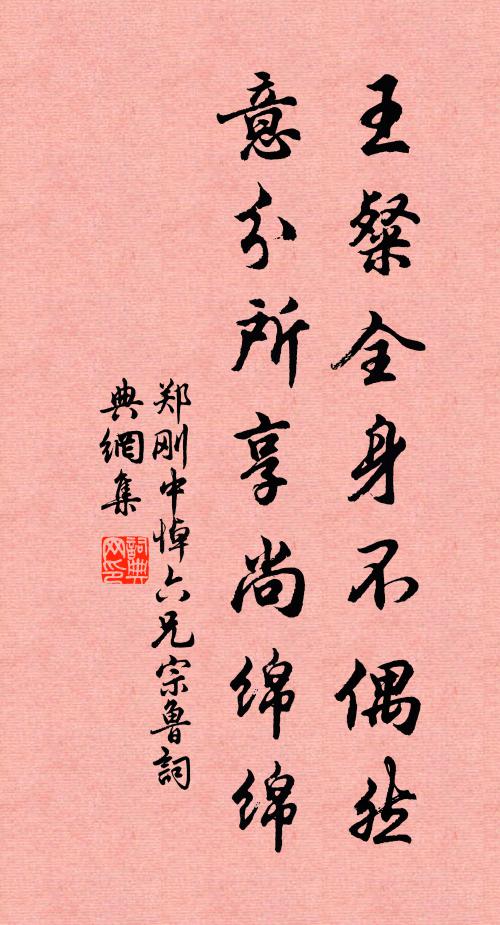 王粲全身不偶然
意分所享尚绵绵
郑刚中悼六兄宗鲁詞
典網集
詞典
网印